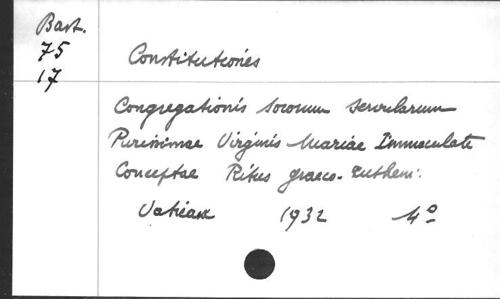 Bast.
75
17
Constitutiones
Congregationis sororum servularum
Purissimae Virginis Mariae Immaculate
Conceptae Ritus graeco-ruthen:
Vatican 1932 4°